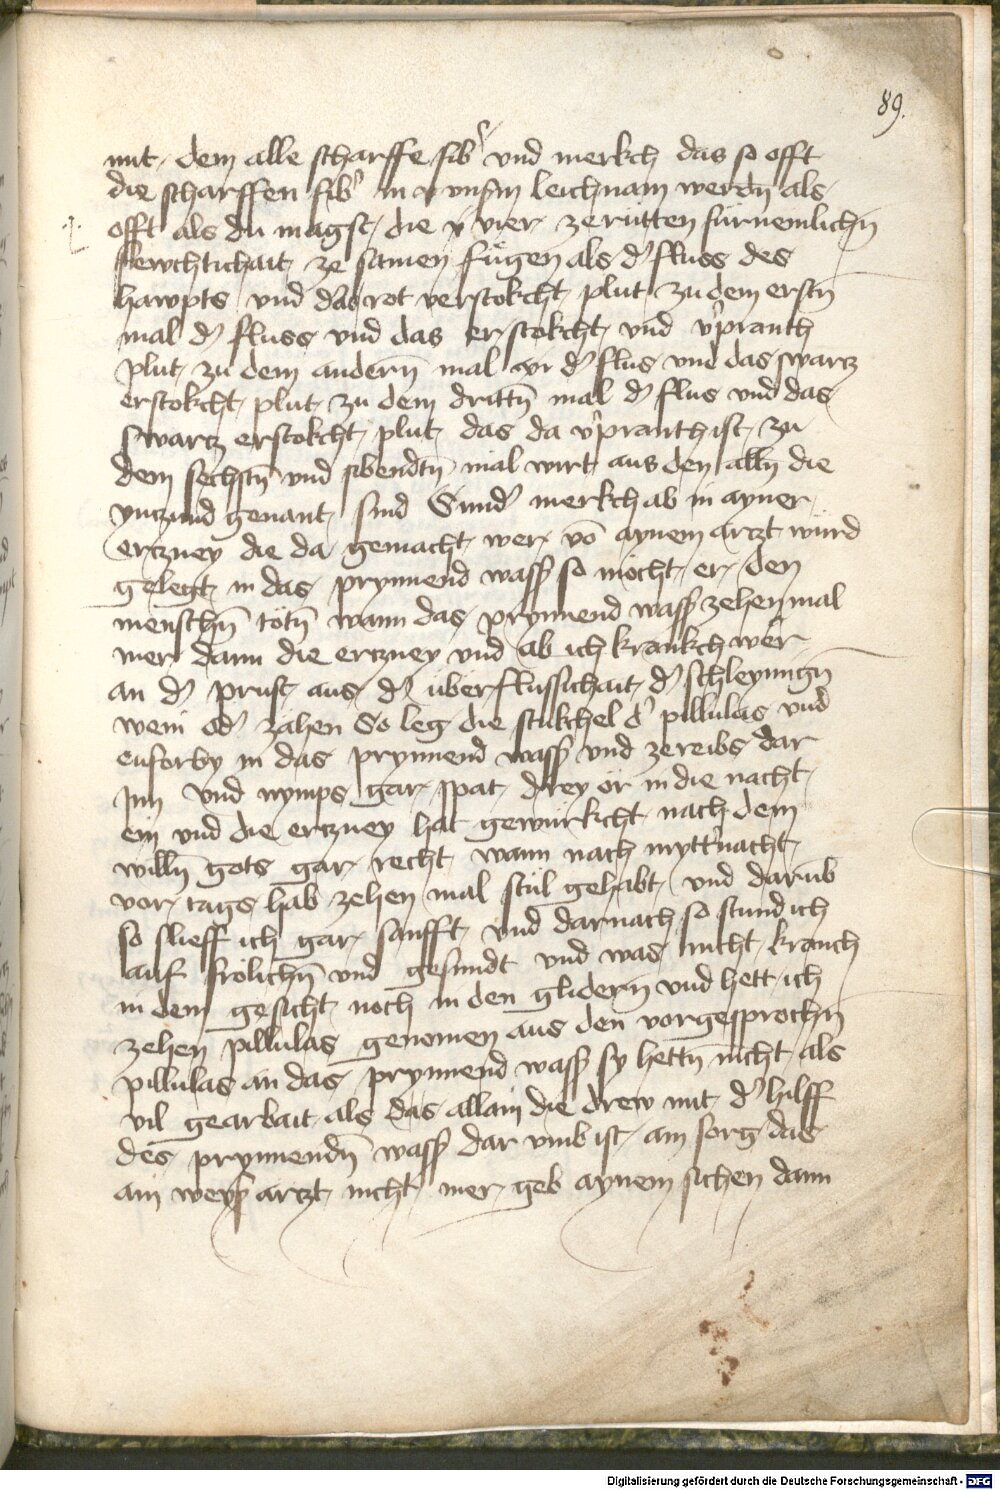 89.
mit dem alle scharffe fibˀ vnd merkch das so offt
die scharffen fibˀ in vnsˀm leichnam werdn̄ als
offt als du magst die vier zerütten fürnemlichn̄
fewchtichait ze samen fügen als dˀ fluss des
hawpts vnd das rot verstokcht plut zu dem erstn̄
mal dˀ fluss vnd das er stokcht vnd vˀpranth
plut zu dem andern̄ mal dˀ flus vnd das swarz
erstokcht plut zu dem drittn̄ mal dˀ flus vnd das
swarcz erstokcht plut das da vˀpranth ist zu
dem sechstn̄ vnd sibendtn̄ mal wirt aus den alln̄ die
genant sind Sundˀ merkch ab in ayner
erczney die da gemacht wer vō aynem arczt würd
gelegt in das prynnend wassˀ so möcht er den
menschn̄ tötn̄ wann das prynnend wassˀ zehen mal
mer dann die erczney vnd ab ich krankch wer
an dˀ prust aus dˀ überflussichait dˀ schleynnign̄
wein odˀ zähen So leg die stukchel dˀ pillulas vnd
euforby in das prynnend wassˀ vnd zereibs dar
jnn vnd nymps gar spat drey ör in die nacht
ein vnd die erczney hat gewürkcht nach dem
willn̄ gots gar recht wann nach myttˀnacht
vor tags hab zehen mal stül gehabt vnd darūb
so slieff ich gar sanfft vnd darnach so stund ich
auf frölichn̄ vnd gesundt vnd was nicht kranch
in dem gesicht noch in den glidern̄ vnd hett ich
zehen pillulas genomen aus den vorgesprochn̄
pillulas an das prynnend wassˀ sy hettn̄ nicht als
vil gearbait als das allain die drew mit dˀ hilff
des prynnendn̄ wassˀ dar vmb ist ain sorg das
ain weysˀ arczt nicht mer geb aynem sichen dann
Digitalisierung gefördert durch die Deutsche Forschungsgemeinschaft - DFG